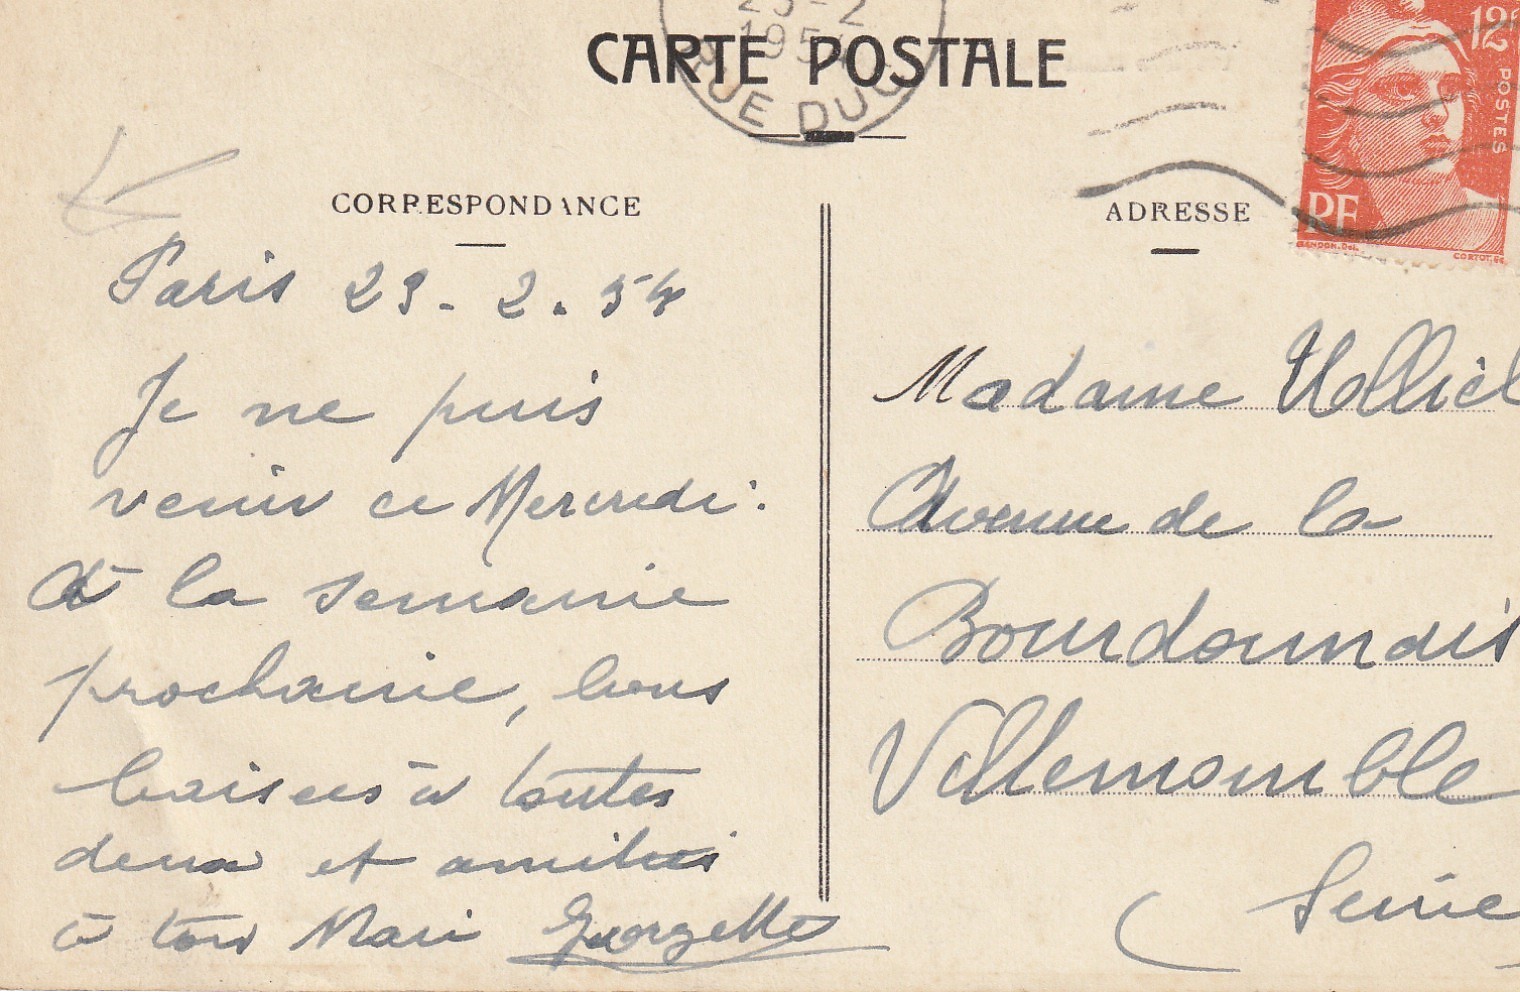 CARTE POSTALE
23-2
1954
RUE DUC
12F
POSTES
RF
GANDON.Del.
CORTOT.Sc
CORRESPONDANCE
ADRESSE
Paris 23-2.54
Je ne puis
venir ce Mercredi.
à la semaine
prochaine, bons
baisers à toutes
deux et amitiés
à ton Mari Georgette
Madame
Avenue de la
Bourdonnais
Villemomble
(Seine